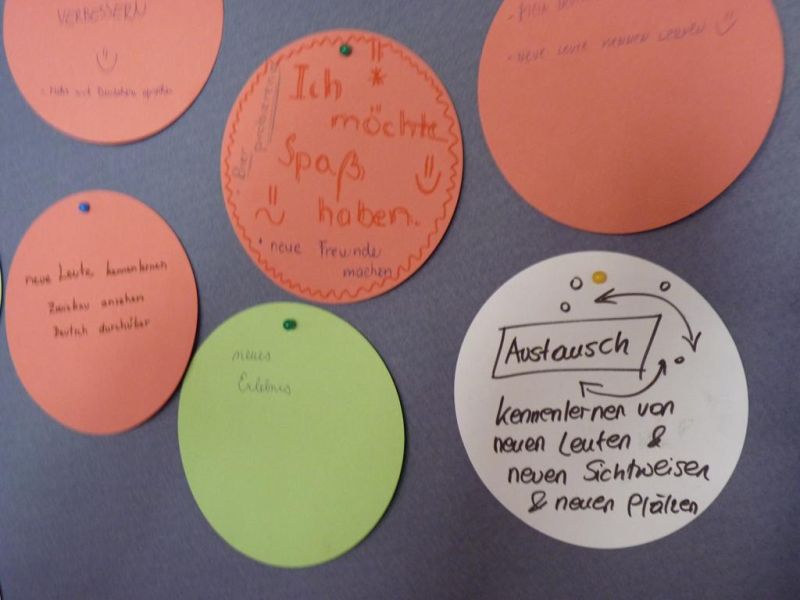 VERBESSERN
- Bier probieren
Ich
möchte
Spaß
haben.
* neue Freunde
machen
- neue Leute kennen lernen
neue Leute kennenlernen
Zwickau ansehen
Deutsch
neues
Erlebnis
Austausch
kennenlernen von
neuen Leuten &
neuen Sichtweisen
& neuen Plätzen